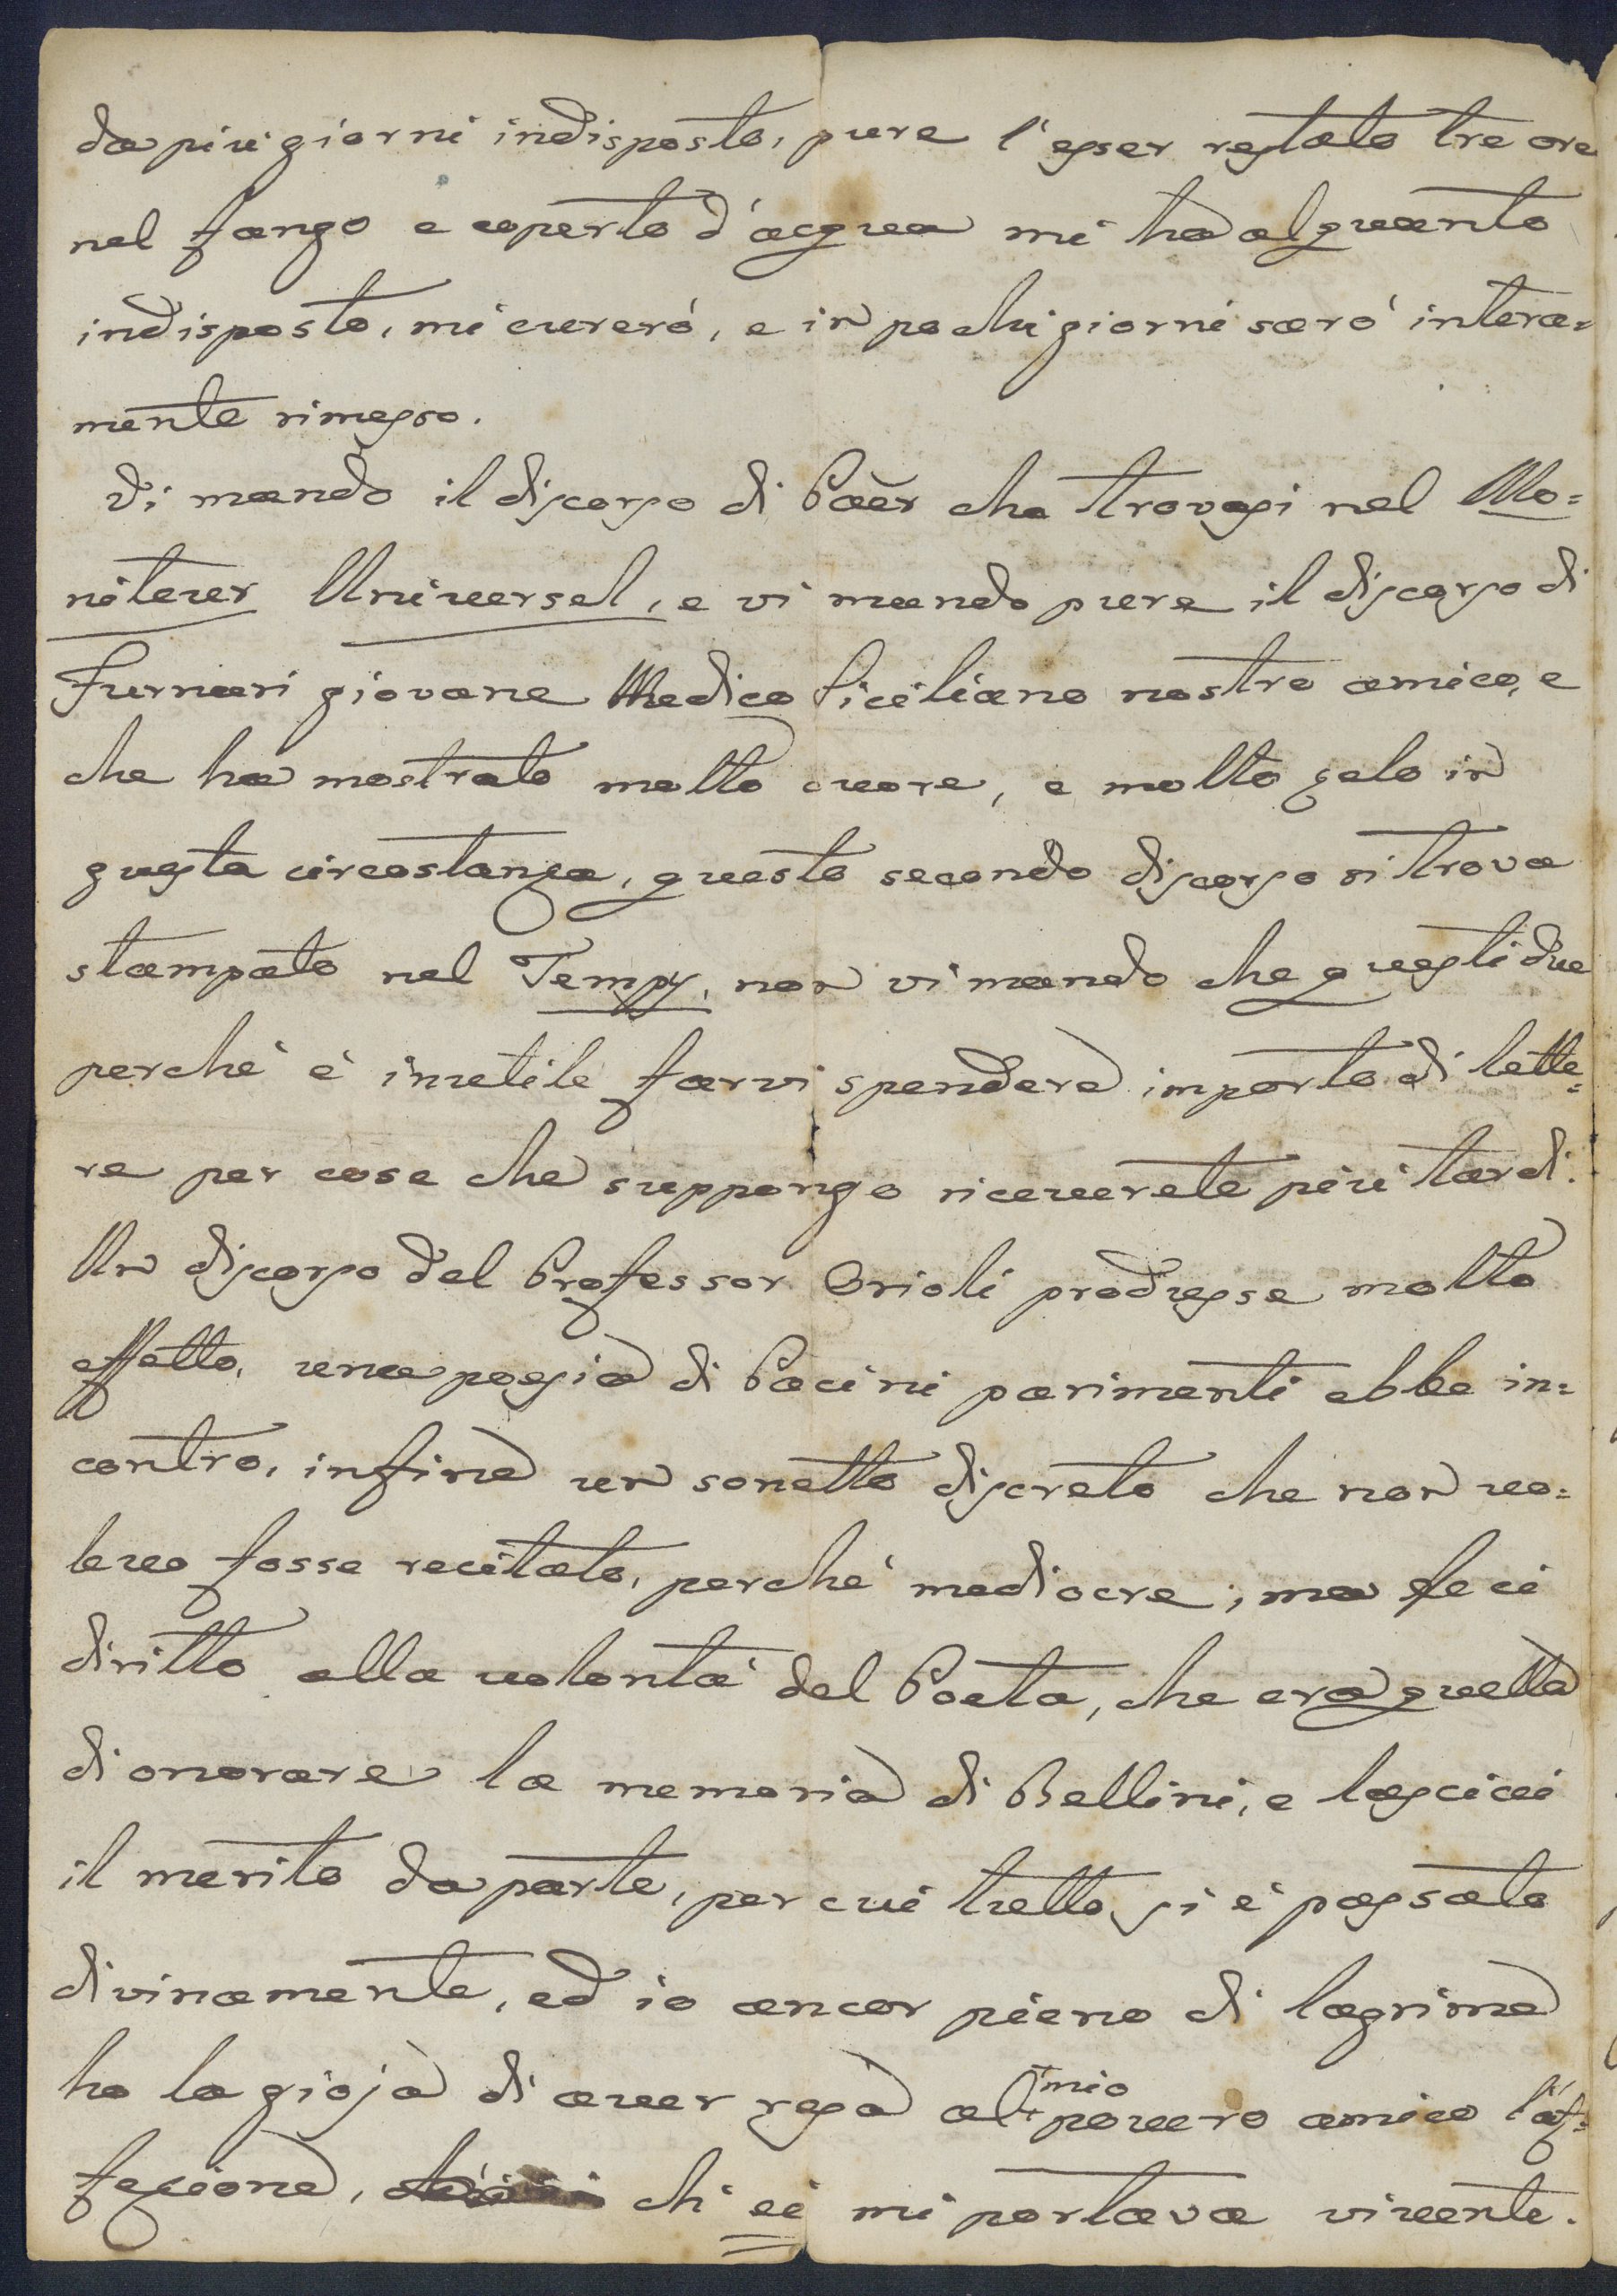 da più giorni indisposto, pure l'esser restato tre ore
nel fango e coperto d'acqua mi ha alquanto
indisposto, mi curerò, e in pochi giorni sarò intera=
mente rimesso.
Vi mando il discorso di Paër che trovasi nel Mo=
niteur Universel, e vi mando pure il discorso di
Furnari giovane Medico Siciliano nostro amico, e
che ha mostrato molto cuore, e molto zelo in
questa circostanza, questo secondo discorso si trova
stampato nel Temps, non vi mando che questi due
perché è inutile farvi spendere importo di lette=
re per cose che suppongo riceverete più tardi.
Un discorso del Professor Orioli produsse molto
effetto, una poesia di Pacini parimenti ebbe in=
contro, infine un sonetto discreto che non vo=
levo fosse recitato, perché mediocre; ma feci
diritto alla volontà del Poeta, che era quella
di onorare la memoria di Bellini, e lasciai
il merito da parte, per cui tutto si è passato
divinamente, ed io ancor pieno di lagrime
ho la gioja di aver resa al mio povero amico l'af=
fezione, ch'ei mi portava vivente.